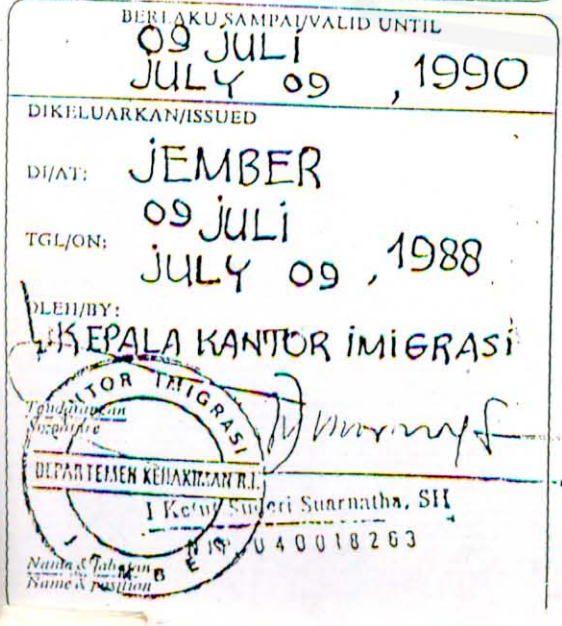 BERLAKU SAMPAI/VALID UNTIL
09 JULI
JULY 09 , 1990
DIKELUARKAN/ISSUED
DI/AT: JEMBER
09 JULI
TGL/ON: JULY 09 , 1988
OLEH/BY:
KEPALA KANTOR IMIGRASI
KANTOR IMIGRASI
Tandatangan
Signature
DEPARTEMEN KEHAKIMAN R.I.
I Ketut Suderi Suarnatha, SH
NIP. 040018263
JEMBER
Nama & Jabatan
Name & position